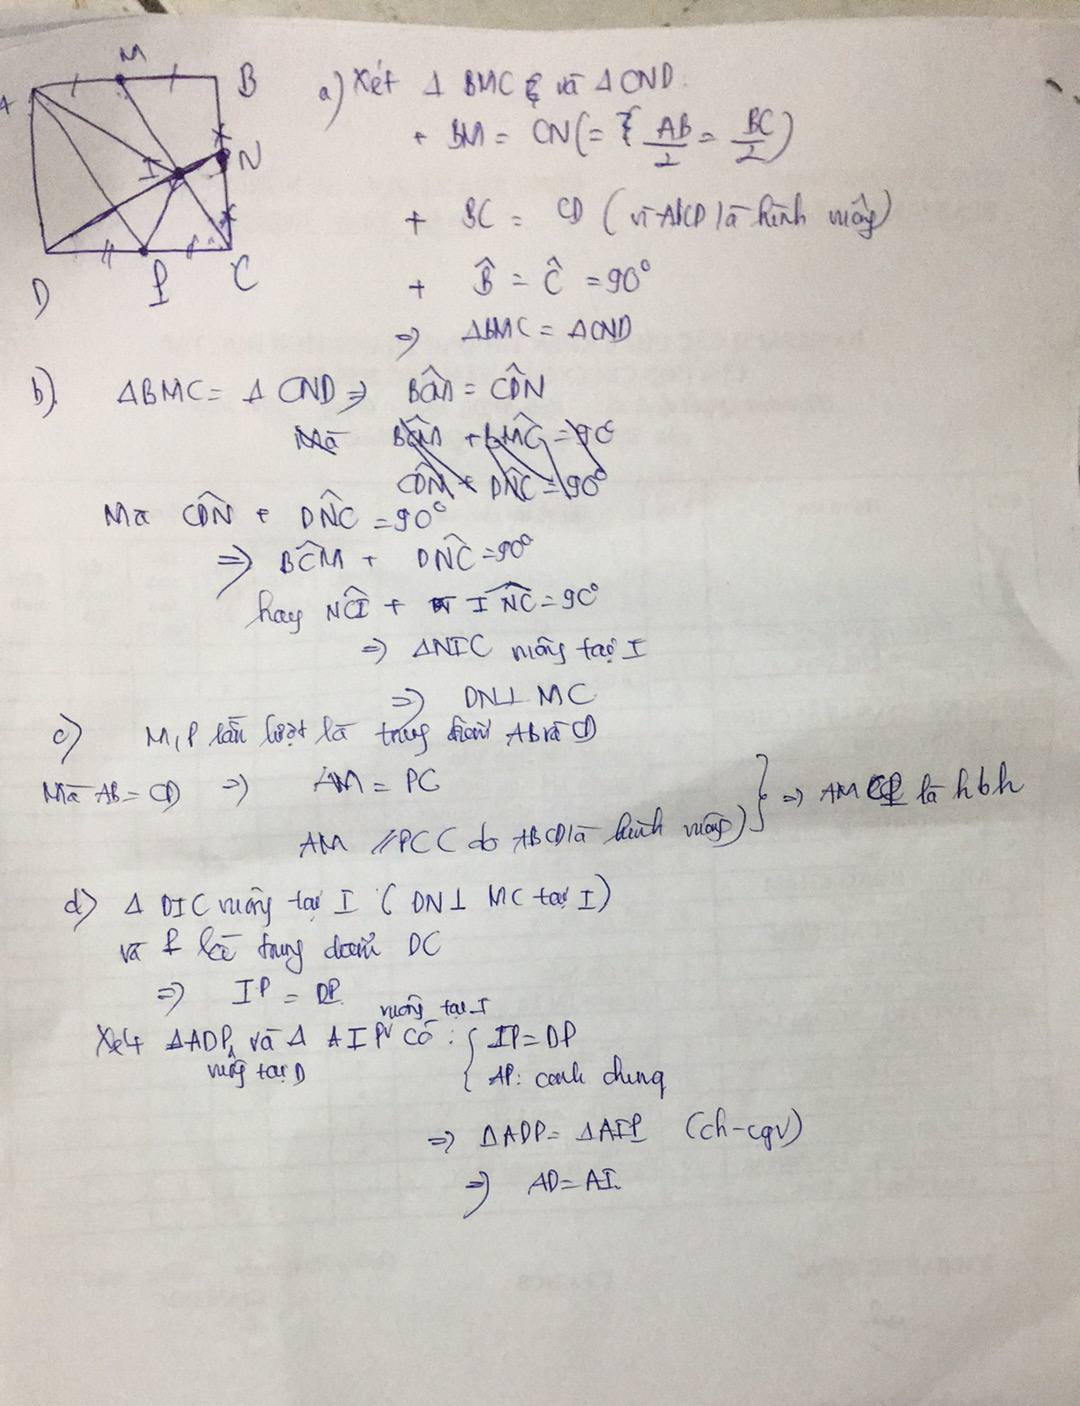 A M B
I N
D P C
a) Xét Δ BMC và Δ CND.
+ BM = CN (= AB/2 = BC/2)
+ BC = CD (vì ABCD là hình vuông)
+ B̂ = Ĉ = 90°
=> ΔBMC = ΔCND
b). ΔBMC = Δ CND => BĈM = CD̂N
Mà BĈM + BM̂C = 90
CD̂N + DN̂C = 90°
Mà CD̂N + DN̂C = 90°
=> BĈM + DN̂C = 90°
hay NĈI + IN̂C = 90°
=> ΔNIC vuông tại I
=> DN ⊥ MC
c) M, P lần lượt là trung điểm AB và CD
Mà AB = CD => AM = PC
AM // PC ( do ABCD là hình vuông) } => AMCP là hbh
d) Δ DIC vuông tại I ( DN ⊥ MC tại I)
và P là trung điểm DC
=> IP = DP
Xét ΔADP vuông tại D và Δ AIP vuông tại I có : { IP = DP
AP: cạnh chung
=> ΔADP = ΔAIP (ch-cgv)
=> AD = AI.